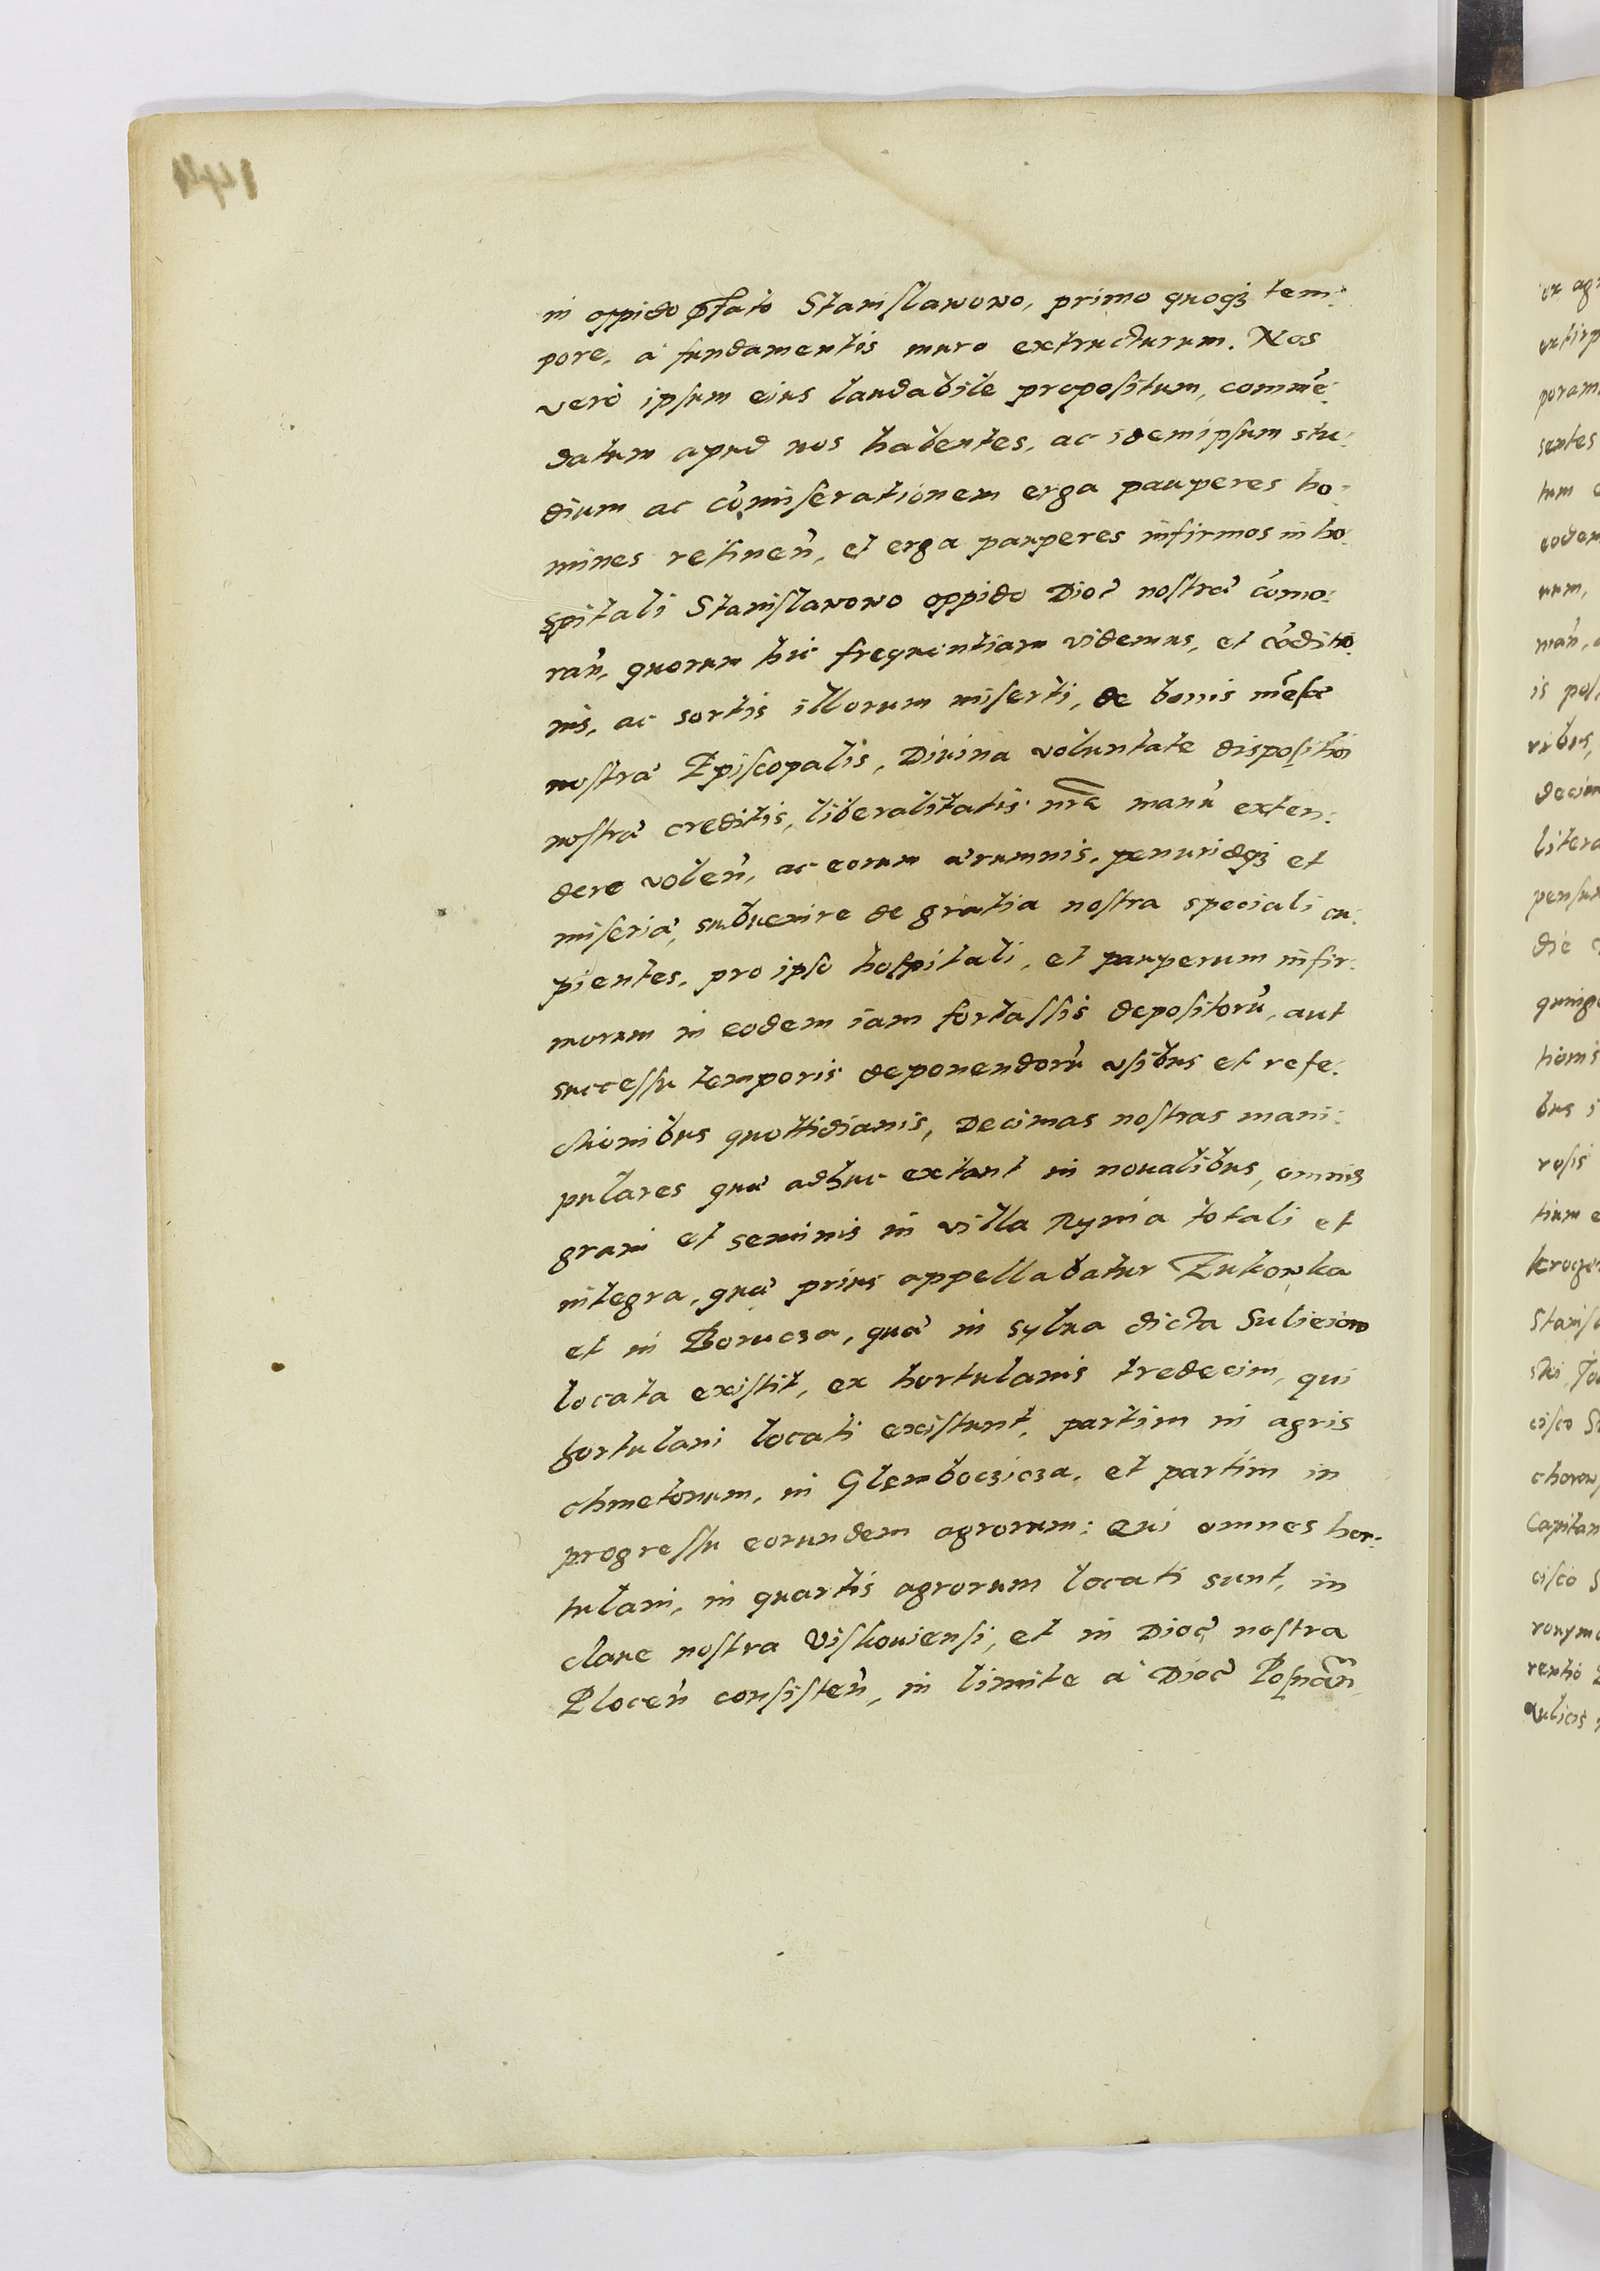 in oppido p̄fato Stanislawowo, primo quoqȝ tem:
pore, à fundamentis muro extructurum. Nos
verò ipsum eius laudabile propositum, commē:
datum apud nos habentes, ac idem ipsum stu:
dium ac cōmiserationem erga pauperes ho:
mines retineñ, et erga pauperes infirmos in ho:
spitali Stanislawowo oppido Dioc̃ nostræ cōmo:
rañ, quorum hic frequentiam videmus, et cōditio
nis, ac sortis illorum miserti, de bonis mēsæ
nostræ Episcopalis, Diuina voluntate dispositioi
nostræ creditis, liberalitatis nr̃æ manū exten:
dere voleñ, ac eorum ærumnis, penuriæqȝ et
miseriæ, subuenire de gratia nostra speciali cu:
pientes, pro ipso hospitali, et pauperum infir:
morum in eodem iam fortassis depositorū, aut
successu temporis deponendorū vsibus et refe:
ctionibus quottidianis, Decimas nostras mani:
pulares quæ adhuc extant in noualibus, omnis
grani et seminis in villa Rynia totali et
integra, quæ prius appellabatur Zukowka
et in Borucza, quæ in sylua dicta Suliciow
locata existit, ex hortulanis tredecim, qui
hortulani locati existunt, partim in agris
chmetonum, in Glemboczicza, et partim in
progressu eorundem agrorum: Qui omnes hor:
tulani, in quartis agrorum locati sunt, in
claue nostra Viskouiensi, et in Dioc̃ nostra
Ploceñ consisteñ, in limite à Dioc̃ Posnañ